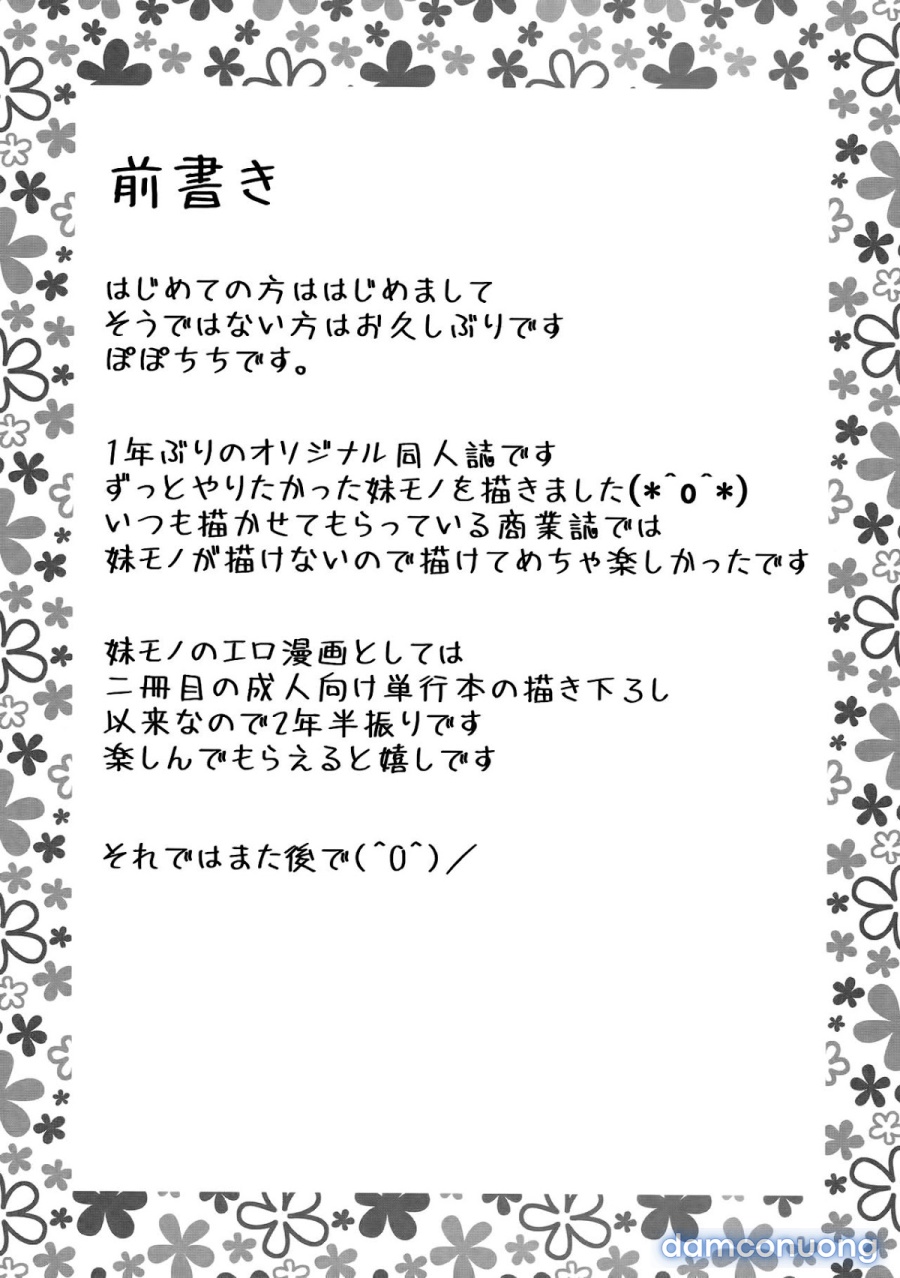 前書き
はじめての方ははじめまして
そうではない方はお久しぶりです
ぽぽちちです。
1年ぶりのオリジナル同人誌です
ずっとやりたかった妹モノを描きました(*^o^*)
いつも描かせてもらっている商業誌では
妹モノが描けないので描けてめちゃ楽しかったです
妹モノのエロ漫画としては
二冊目の成人向け単行本の描き下ろし
以来なので2年半振りです
楽しんでもらえると嬉しです
それではまた後で(^O^)／
damconuong